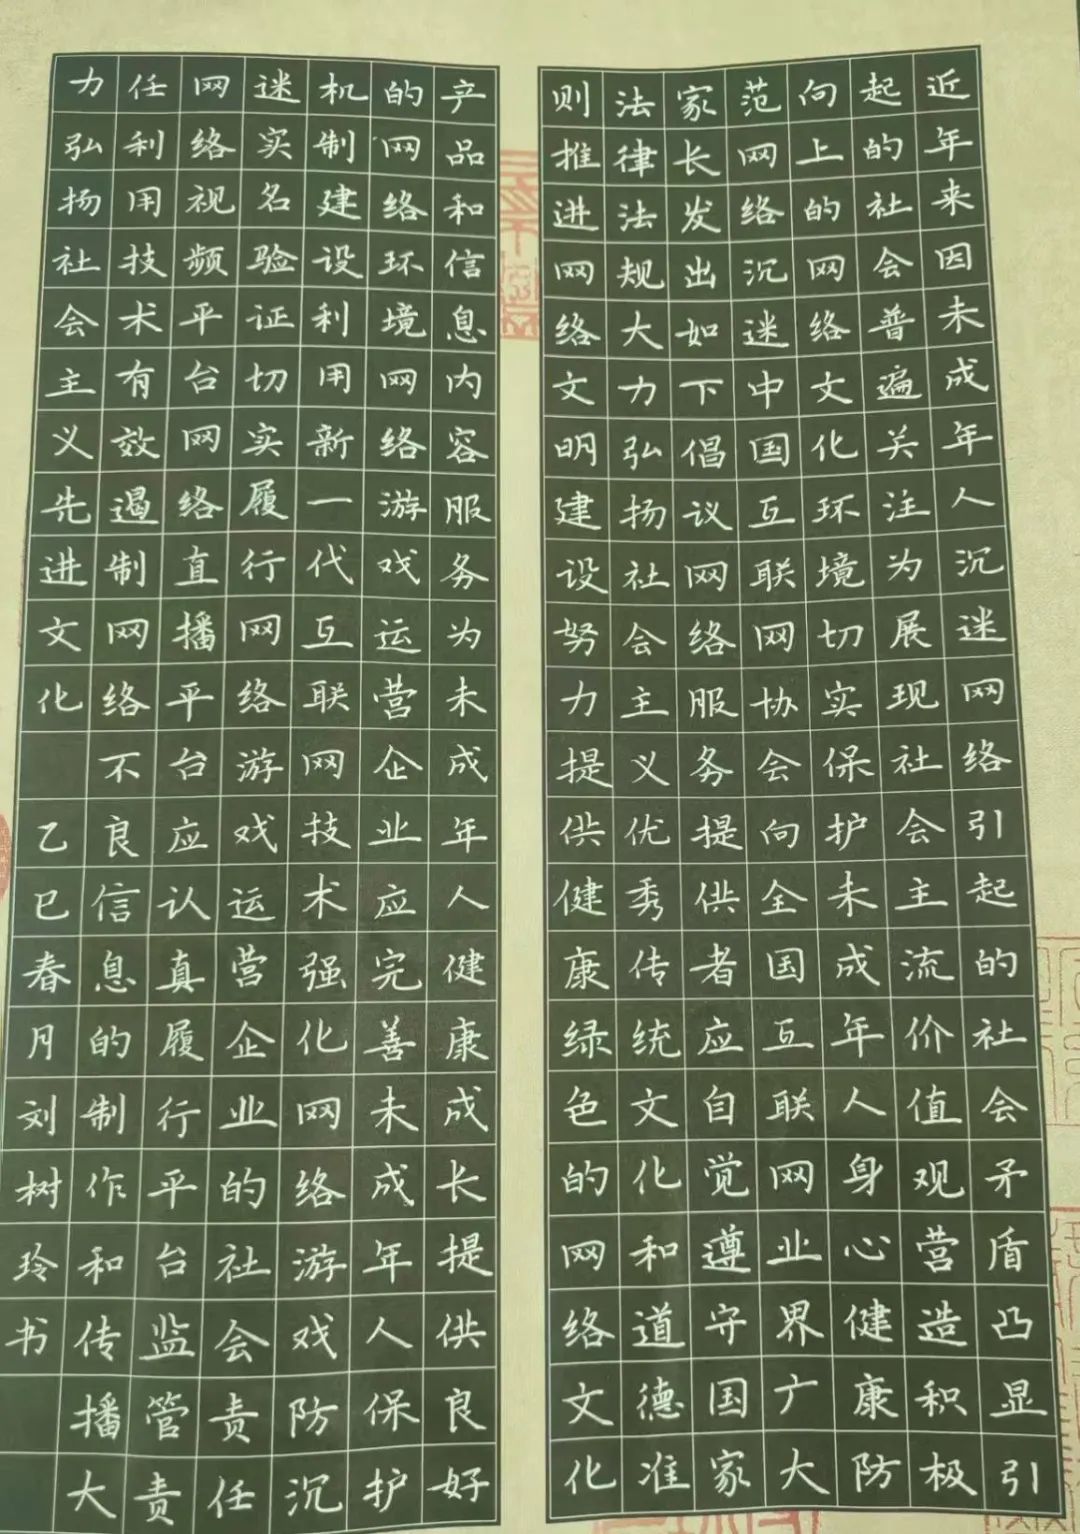 近年来因未成年人沉迷网络引起的社会矛盾凸显引
起的社会普遍关注为展现社会主流价值观营造积极
向上的网络文化环境切实保护未成年人身心健康防
范网络沉迷中国互联网协会向全国互联网业界广大
家长发出如下倡议网络服务提供者应自觉遵守国家
法律法规大力弘扬社会主义优秀传统文化和道德准
则推进网络文明建设努力提供健康绿色的网络文化
产品和信息内容服务为未成年人健康成长提供良好
的网络环境网络游戏运营企业应完善未成年人保护
机制建设利用新一代互联网技术强化网络游戏防沉
迷实名验证切实履行网络游戏运营企业的社会责任
网络视频平台网络直播平台应认真履行平台监管责
任利用技术有效遏制网络不良信息的制作和传播大
力弘扬社会主义先进文化 乙巳春月刘树玲书